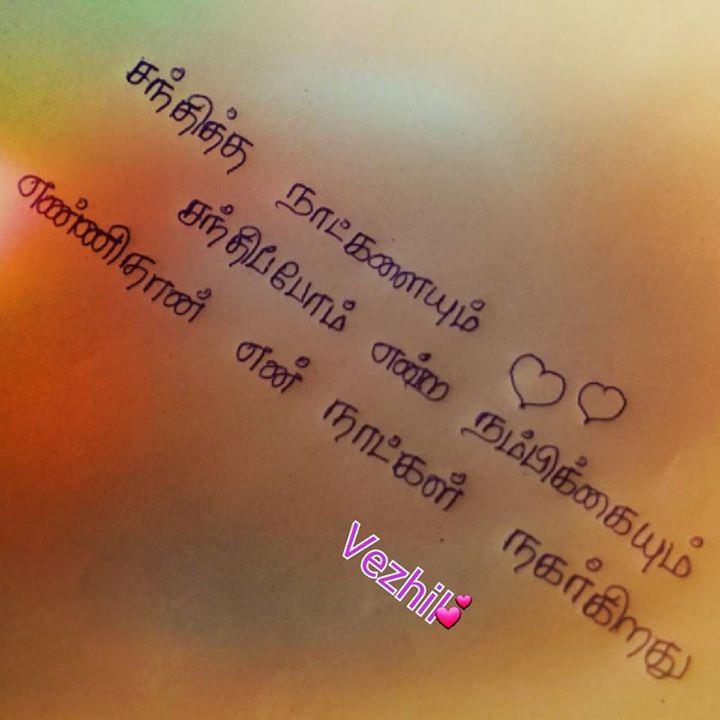 சந்தித்த நாட்களையும்
சந்திப்போம் என்ற நம்பிக்கையும்
எண்ணிதான் என் நாட்கள் நகர்கிறது
Vezhil